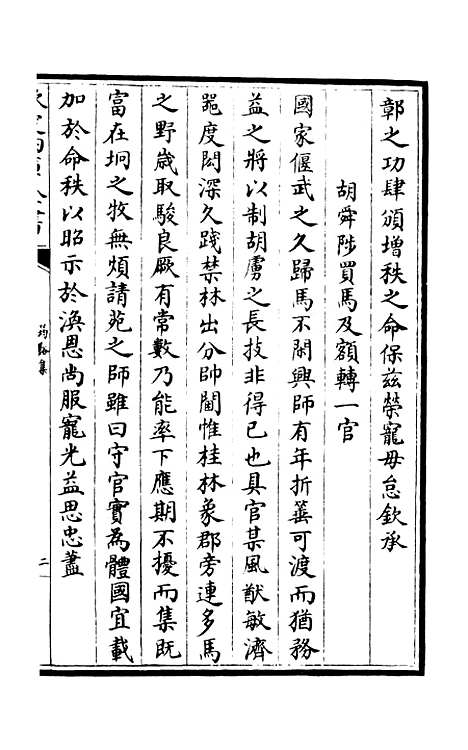 鄣之功肆頒增秩之命保兹榮寵毋怠欽承
胡舜陟買馬及額轉一官
國家偃武之久歸馬不閑興師有年折箠可渡而猶務
益之將以制胡虜之長技非得已也具官某風猷敏濟
噐度閎深久踐禁林出分帥閫惟桂林象郡旁連多馬
之野歳取駿良厥有常數乃能率下應期不擾而集既
富在坰之牧無煩請苑之師雖曰守官實為體國宜載
加於命秩以昭示於渙恩尚服寵光益思忠藎
筠谿集
二